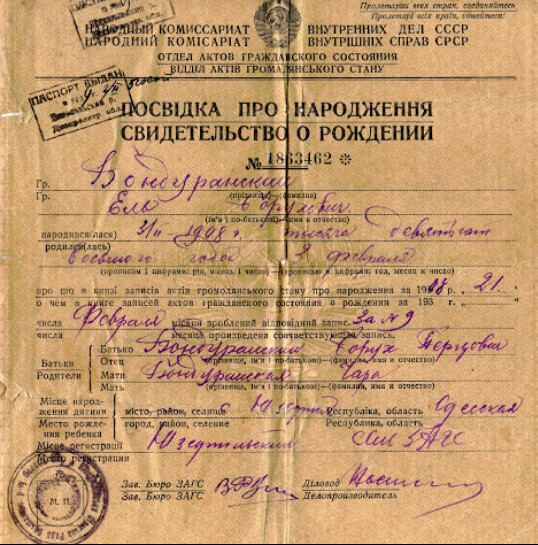 Пролетарии всех стран, соединяйтесь
Пролетарі всіх країн, єднайтеся!
НАРОДНЫЙ КОМИССАРИАТ ВНУТРЕННИХ ДЕЛ СССР
НАРОДНИЙ КОМІСАРІАТ ВНУТРІШНІХ СПРАВ СРСР
ОТДЕЛ АКТОВ ГРАЖДАНСКОГО СОСТОЯНИЯ
ВІДДІЛ АКТІВ ГРОМАДЯНСЬКОГО СТАНУ
ПАСПОРТ ВЫДАН
ПОСВІДКА ПРО НАРОДЖЕННЯ
СВИДЕТЕЛЬСТВО О РОЖДЕНИИ
№ 1863462 *
Гр. Бондуранский
(прізвище)—(фамилия)
Гр. Ель Борухович
(ім'я і по-батькові)—(имя и отчество)
народився(лася) 3/II 1908 г. тысяча девятьсот
родился(лась) восьмого года 3 февраля
(прописом і цифрами: рік, місяць і число)—(прописью и цифрами: год, месяц и число)
про що в книзі записів актів громадянського стану про народження за 1908 21
о чем в книге записей актов гражданского состояния о рождении за 193 г.
числа Февраля місяця зроблений відповідний запис. За № 9
числа месяца произведена соответствующая запись.
Батьки Батько Бондуранский Борух
Родители Отец
(прізвище, ім'я і по-батькові)—(фамилия, имя и отчество)
Мати Бондуранская
Мать
(прізвище, ім'я і по-батькові)—(фамилия, имя и отчество)
Місце народження дитини місто, район, селище Республіка, область Одесская
Место рождения ребенка город, район, селение Республика, область
Місце регистрації ЗАГС
Место регистрации
М. П.
Зав. Бюро ЗАГС Діловод
Зав. Бюро ЗАГС Делопроизводитель